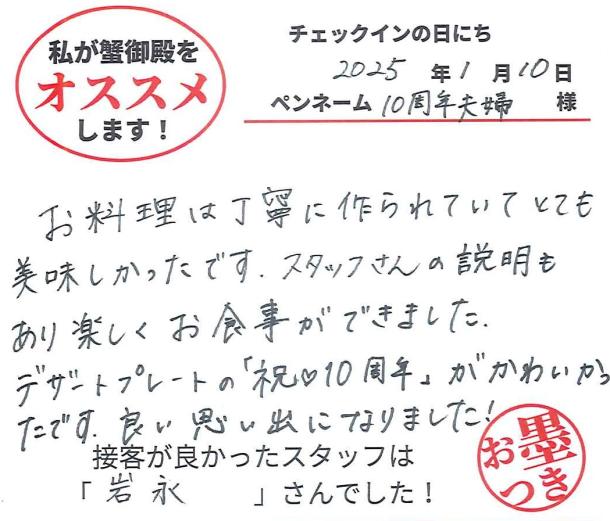 私が蟹御殿を
オススメ
します！
チェックインの日にち
2025 年 1 月 10 日
ペンネーム 10周年夫婦 様
お料理は丁寧に作られていてとても
美味しかったです.スタッフさんの説明も
あり楽しくお食事ができました.
デザートプレートの「祝♡10周年」がかわいかっ
たです.良い思い出になりました!
接客が良かったスタッフは
「岩永　　」さんでした！
お墨つき